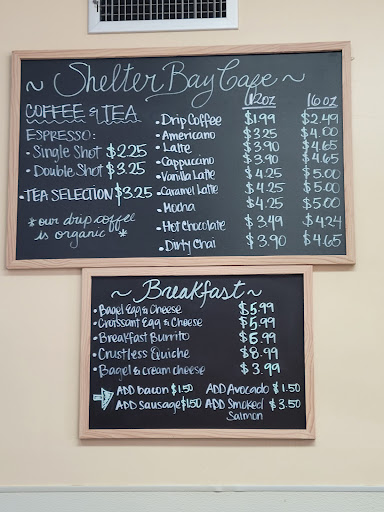 ~ Shelter Bay Cafe ~
COFFEE & TEA
ESPRESSO:
• Single Shot $2.25
• Double Shot $3.25
• TEA SELECTION $3.25
* our drip coffee
is organic *
12oz 16oz
• Drip Coffee $1.99 $2.49
• Americano $3.25 $4.00
• Latte $3.90 $4.65
• Cappuccino $3.90 $4.65
• Vanilla Latte $4.25 $5.00
• Caramel Latte $4.25 $5.00
• Mocha $4.25 $5.00
• Hot Chocolate $3.49 $4.24
• Dirty Chai $3.90 $4.65
~ Breakfast ~
• Bagel Egg & Cheese $5.99
• Croissant Egg & Cheese $5.99
• Breakfast Burrito $6.99
• Crustless Quiche $8.99
• Bagel & cream cheese $3.99
ADD bacon $1.50 ADD Avocado $1.50
ADD Sausage $1.50 ADD Smoked Salmon $3.50